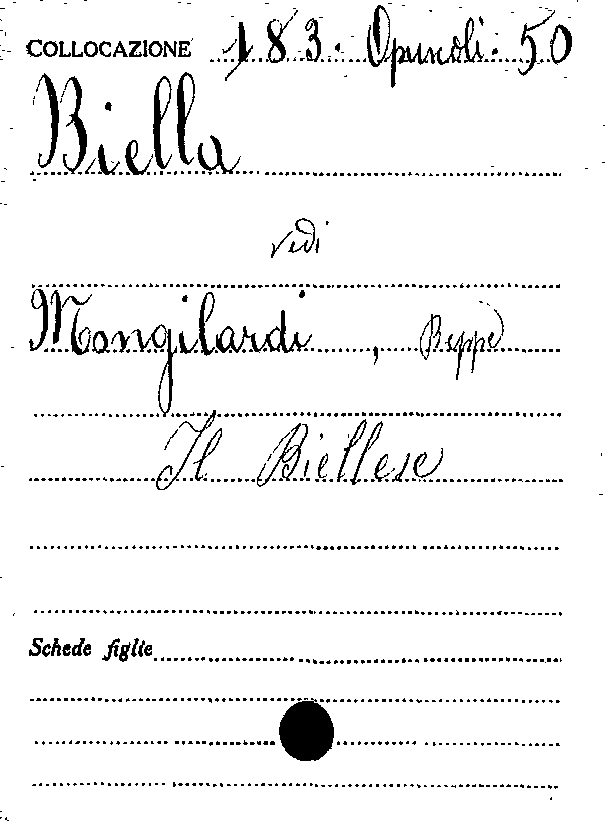 COLLOCAZIONE 183. Opuscoli. 50
Biella
vedi
Mongilardi, Beppe
Il Biellese
Schede figlie